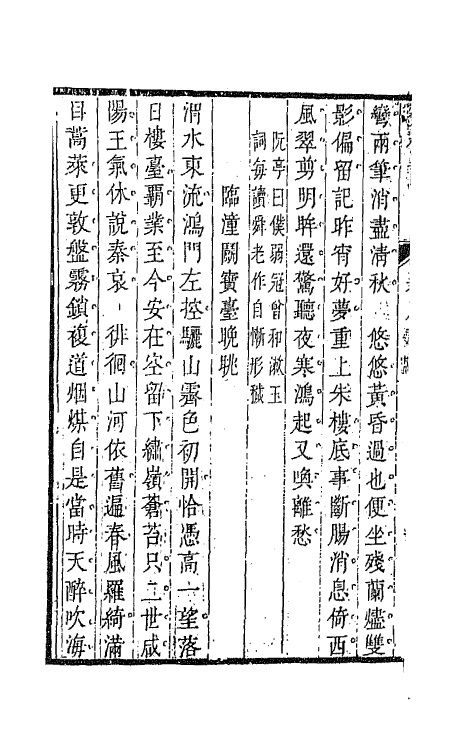 彎兩筆消盡清秋　悠悠黃昏過也便坐殘蘭燼雙
影偏留記昨宵好夢重上朱樓底事斷腸消息倚西
風翠剪明眸還驚聽夜寒鴻起又喚離愁
阮亭曰僕弱冠曾和漱玉
詞每讀舜老作自慚形穢
臨潼關寶臺晚眺
渭水東流鴻門左控驪山霽色初開恰憑高一望落
日樓臺霸業至今安在空留下繡嶺蒼苔只二世咸
陽王氣休說秦哀　徘徊山河依舊遍春風羅綺滿
目蒿萊更敦盤霧鎖複道烟煤自是當時天醉吹海